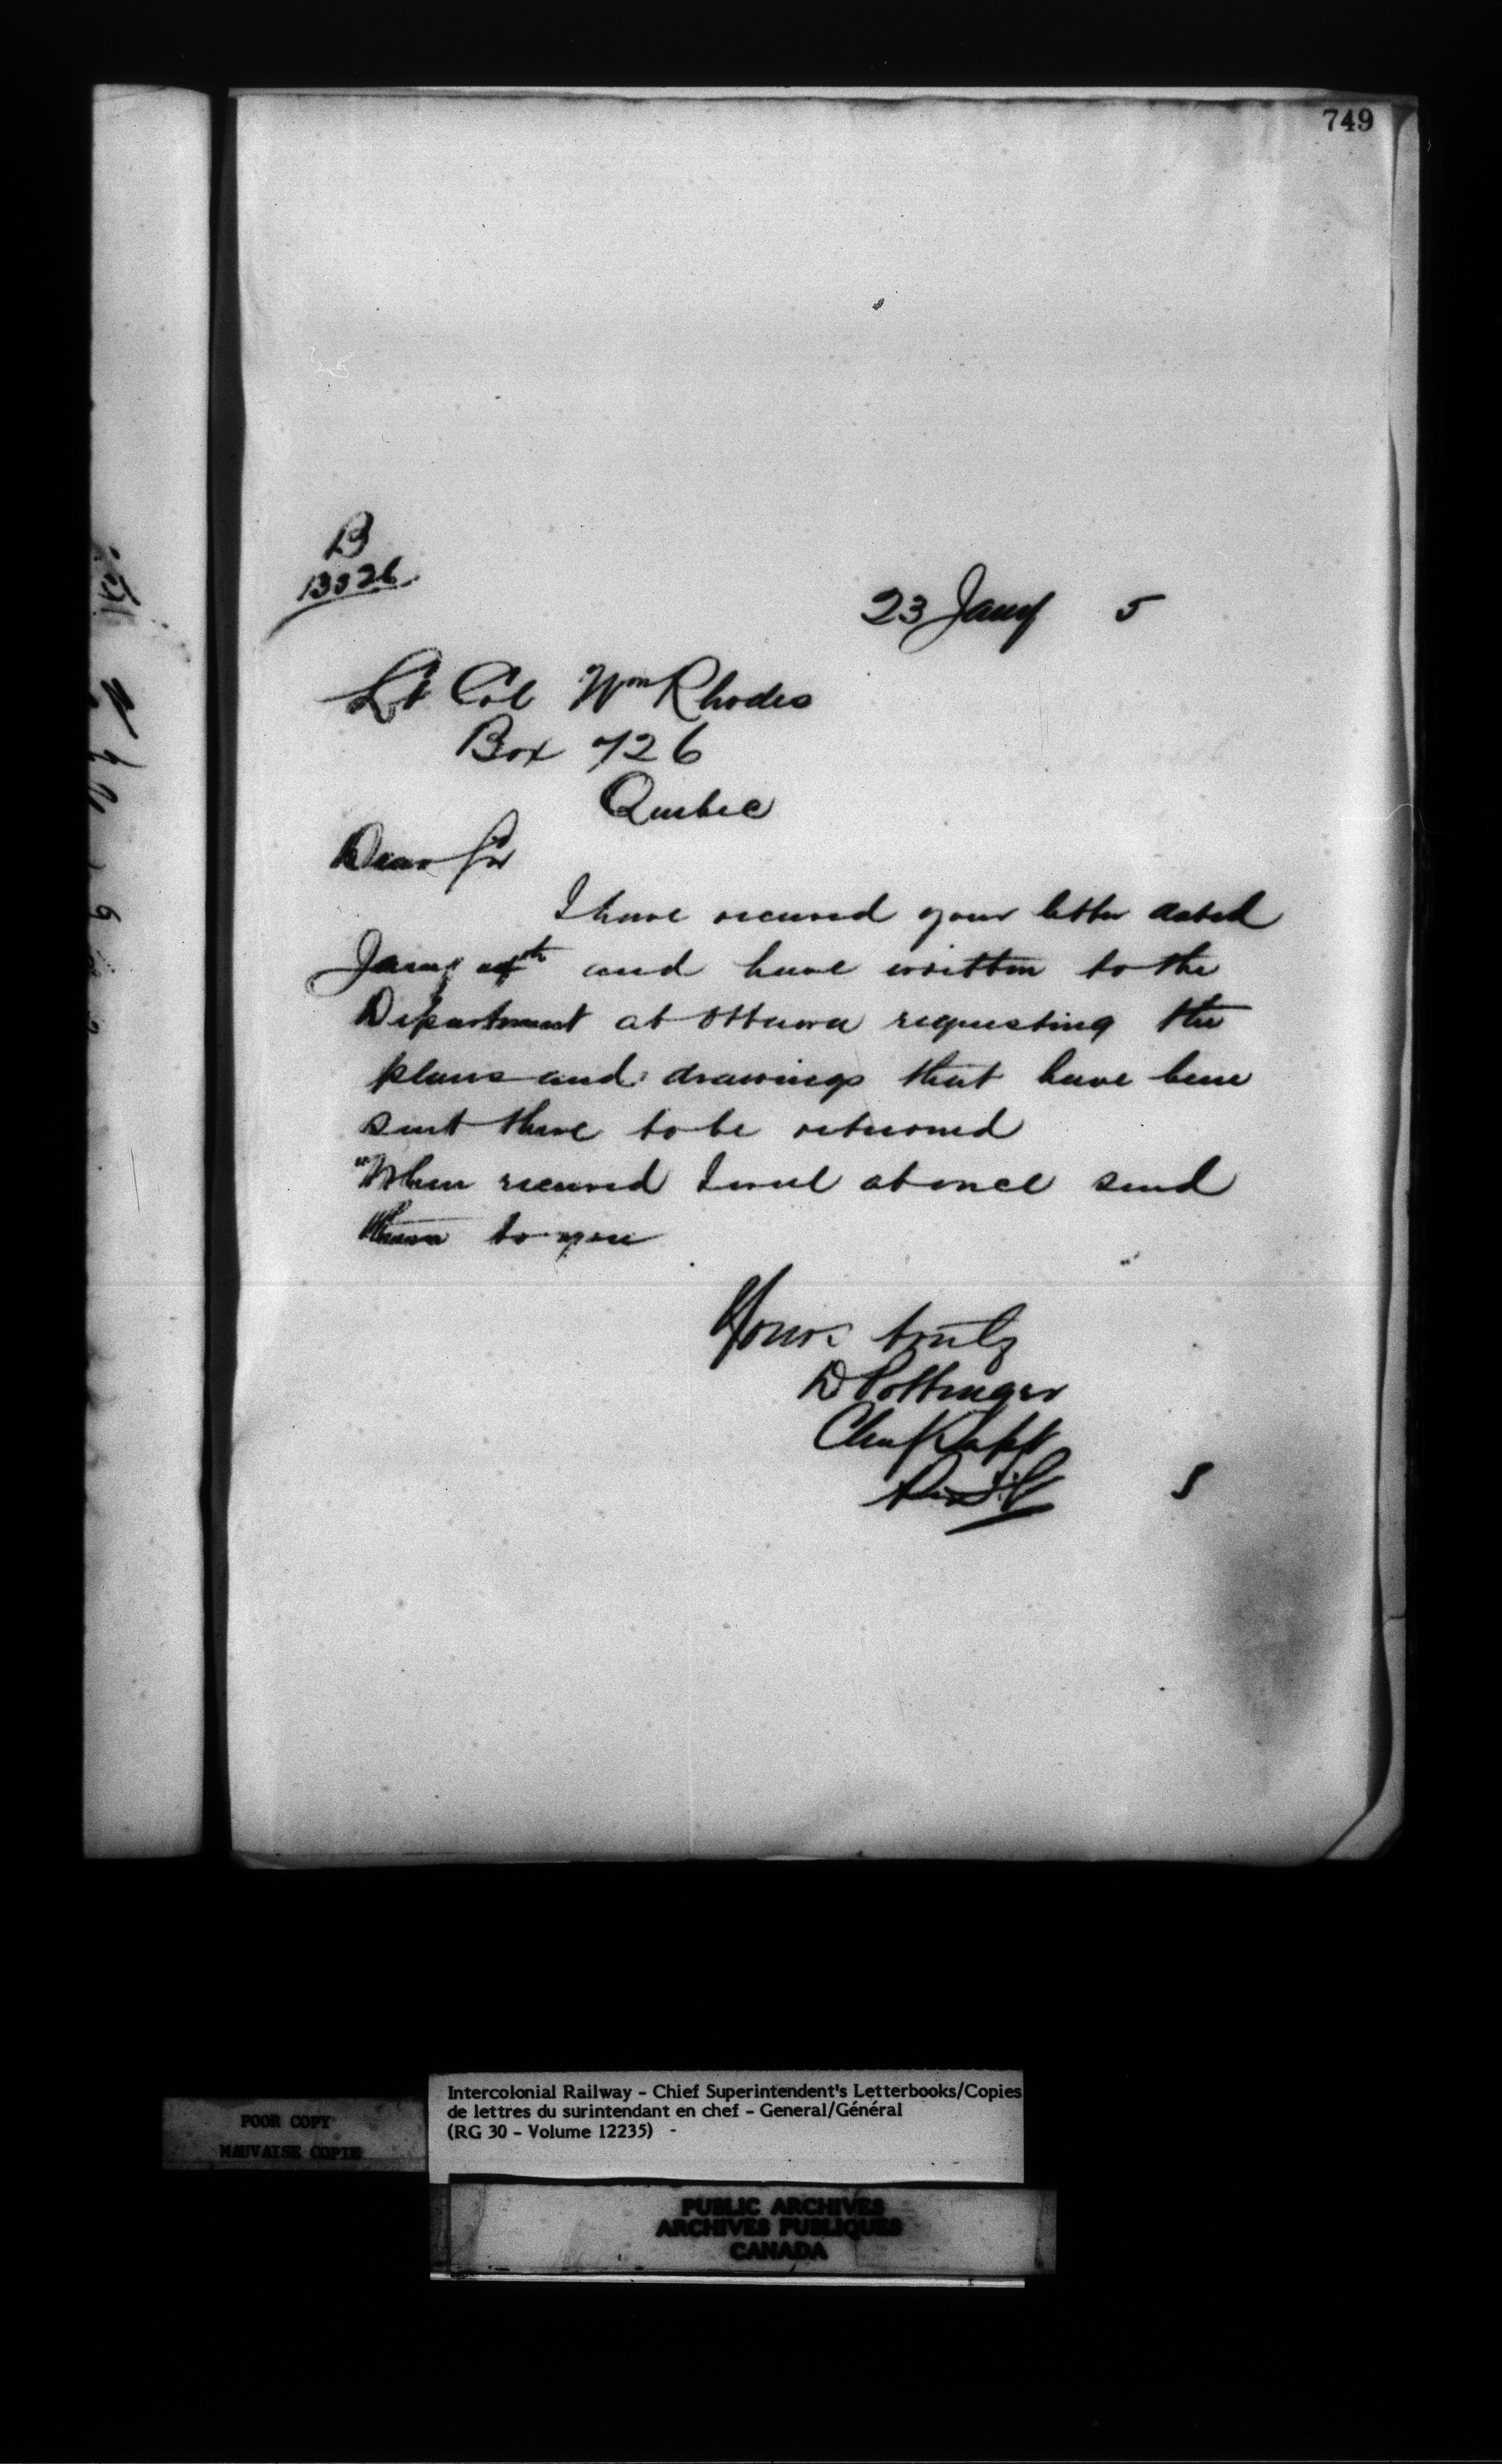 749
B
13326
23 Jany 5
Lt Col Wm Rhodes
Box 726
Quebec
Dear Sir
I have received your letter dated
Jany th and have written to the
Department at Ottawa requesting the
plans and drawings that have been
sent there to be returned
When received I will at once send
them to you
Yours truly
D Pottinger
Chief Supt
S
Intercolonial Railway - Chief Superintendent's Letterbooks/Copies
de lettres du surintendant en chef - General/Général
(RG 30 - Volume 12235) -
POOR COPY
MAUVAISE COPIE
PUBLIC ARCHIVES
ARCHIVES PUBLIQUES
CANADA